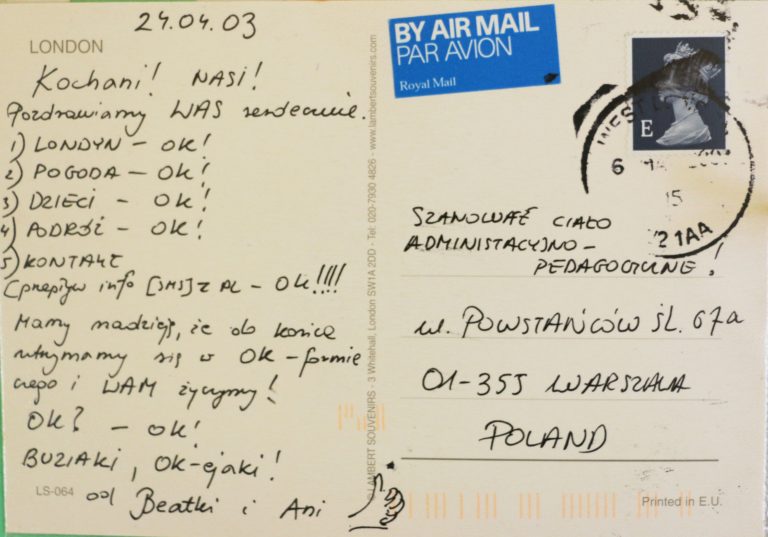 LONDON
24.04.03
Kochani! NASI!
Pozdrawiamy WAS serdecznie.
1) LONDYN – OK!
2) POGODA – OK!
3) DZIECI – OK!
4) PODRÓŻ – OK!
5) KONTAKT
(przepływ info [SMS] z PL – OK!!!!
Mamy nadzieję, że do końca
utrzymamy się w OK – formie
czego i WAM życzymy!
OK? – OK!
BUZIAKI, OK-ejaki!
od Beatki i Ani
LS-064
© LAMBERT SOUVENIRS - 3 Whitehall, London SW1A 2DD - Tel: 020-7930 4826 - www.lambertsouvenirs.com
BY AIR MAIL
PAR AVION
Royal Mail
E
6
15
2 1AA
SZANOWNE CIAŁO
ADMINISTACYJNO –
PEDAGOGICZNE!
ul. POWSTAŃCÓW ŚL. 67a
01-355 WARSZAWA
POLAND
Printed in E.U.